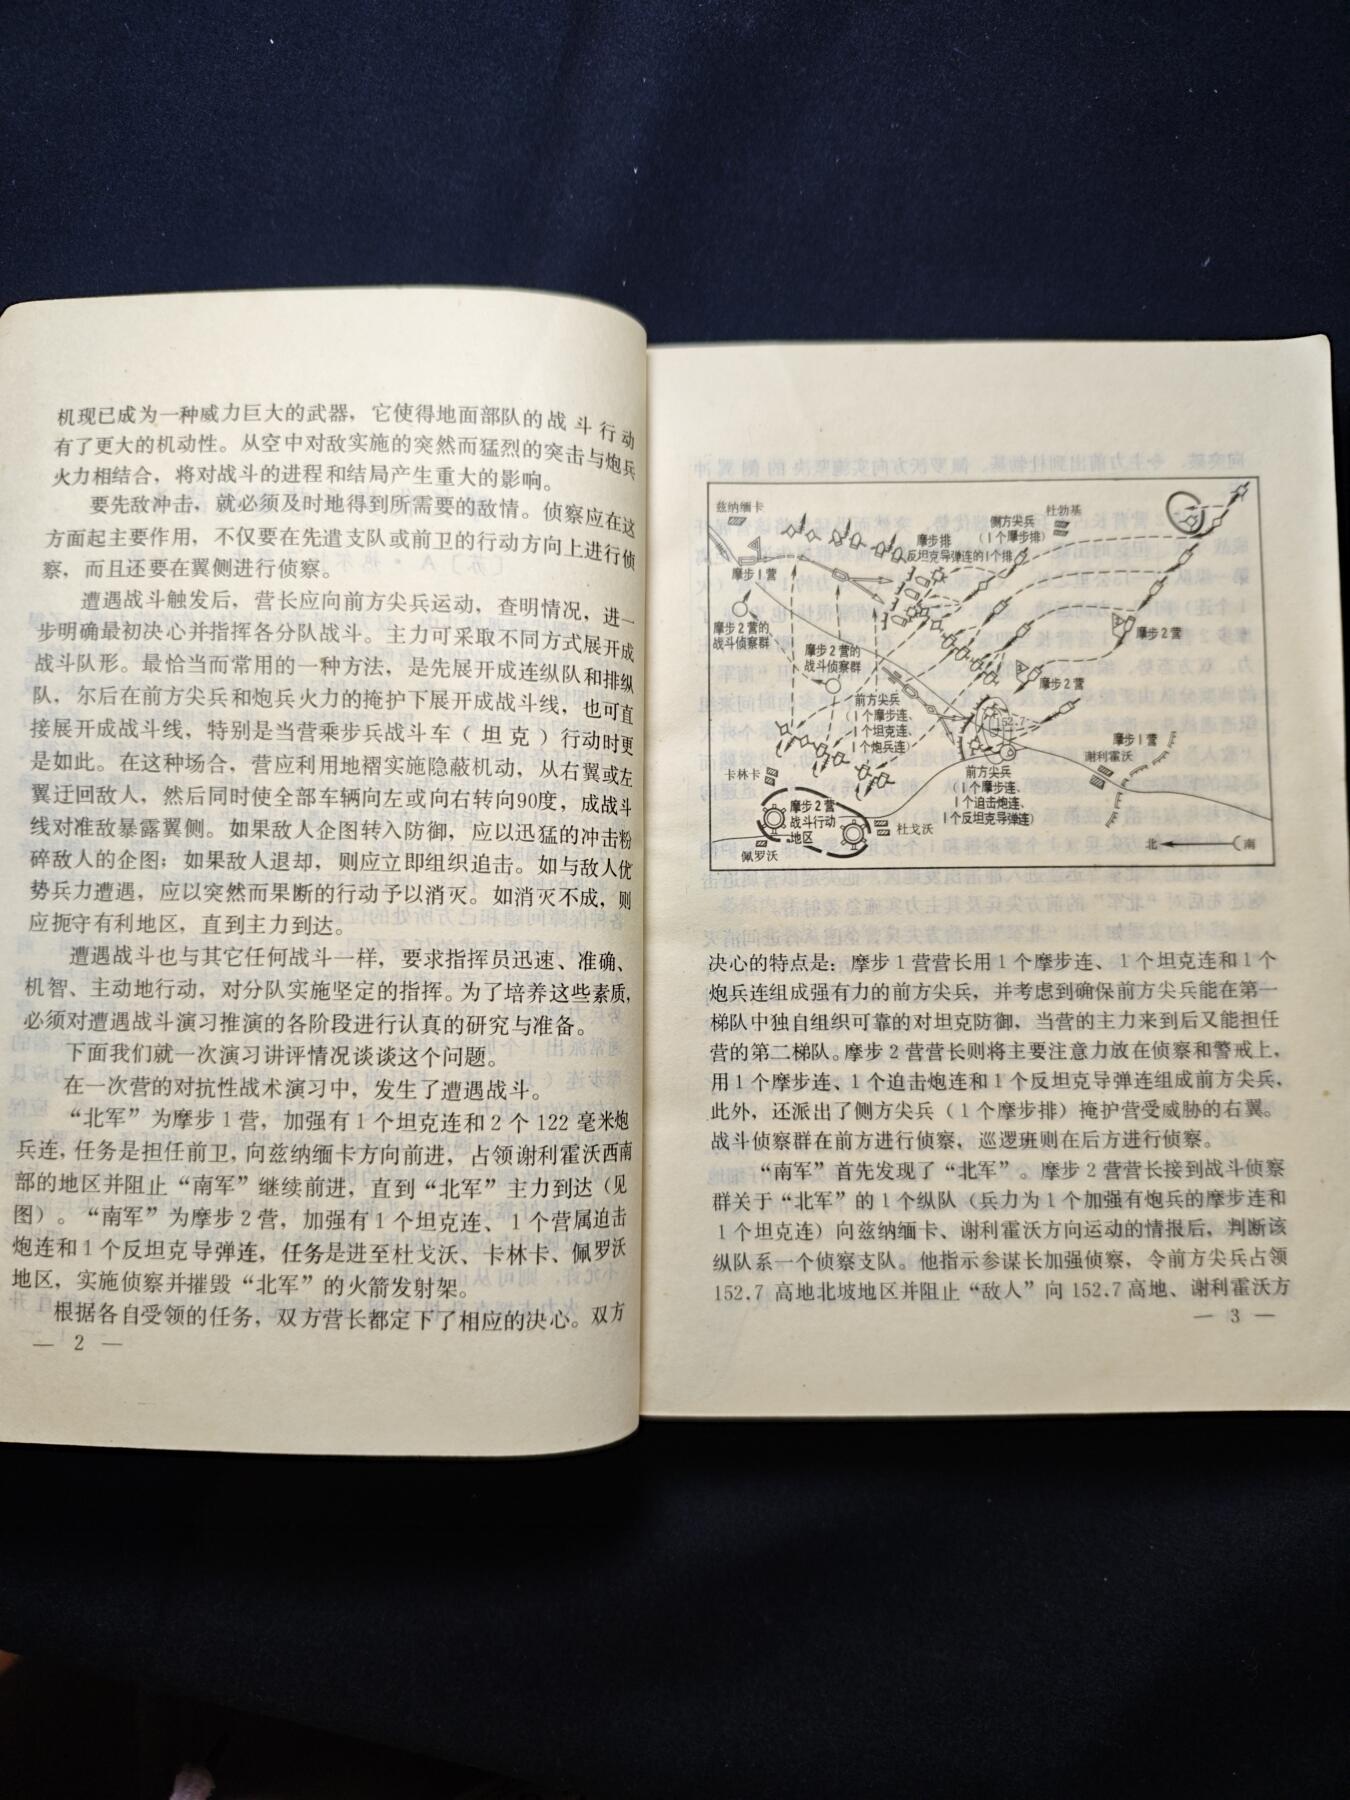 机现已成为一种威力巨大的武器，它使得地面部队的战斗行动
有了更大的机动性。从空中对敌实施的突然而猛烈的突击与炮兵
火力相结合，将对战斗的进程和结局产生重大的影响。
要先敌冲击，就必须及时地得到所需要的敌情。侦察应在这
方面起主要作用，不仅要在先遣支队或前卫的行动方向上进行侦
察，而且还要在翼侧进行侦察。
遭遇战斗触发后，营长应向前方尖兵运动，查明情况，进一
步明确最初决心并指挥各分队战斗。主力可采取不同方式展开成
战斗队形。最恰当而常用的一种方法，是先展开成连纵队和排纵
队，尔后在前方尖兵和炮兵火力的掩护下展开成战斗线，也可直
接展开成战斗线，特别是当营乘步兵战斗车（坦克）行动时更
是如此。在这种场合，营应利用地褶实施隐蔽机动，从右翼或左
翼迂回敌人，然后同时使全部车辆向左或向右转向90度，成战斗
线对准敌暴露翼侧。如果敌人企图转入防御，应以迅猛的冲击粉
碎敌人的企图；如果敌人退却，则应立即组织追击。如与敌人优
势兵力遭遇，应以突然而果断的行动予以消灭。如消灭不成，则
应扼守有利地区，直到主力到达。
遭遇战斗也与其它任何战斗一样，要求指挥员迅速、准确、
机智、主动地行动，对分队实施坚定的指挥。为了培养这些素质，
必须对遭遇战斗演习推演的各阶段进行认真的研究与准备。
下面我们就一次演习讲评情况谈谈这个问题。
在一次营的对抗性战术演习中，发生了遭遇战斗。
“北军”为摩步1营，加强有1个坦克连和2个122毫米炮
兵连，任务是担任前卫，向兹纳缅卡方向前进，占领谢利霍沃西南
部的地区并阻止“南军”继续前进，直到“北军”主力到达（见
图）。“南军”为摩步2营，加强有1个坦克连、1个营属迫击
炮连和1个反坦克导弹连，任务是进至杜戈沃、卡林卡、佩罗沃
地区，实施侦察并摧毁“北军”的火箭发射架。
根据各自受领的任务，双方营长都定下了相应的决心。双方
— 2 —
兹纳缅卡
摩步1营
摩步2营的
战斗侦察群
摩步2营的
战斗侦察群
摩步排
反坦克导弹连的1个排
侧方尖兵
（1个摩步排）
杜勃基
摩步2营
摩步2营
前方尖兵
（1个摩步连、
1个坦克连、
1个炮兵连）
摩步1营
谢利霍沃
前方尖兵
（1个摩步连、
1个迫击炮连、
1个反坦克导弹连）
卡林卡
摩步2营
战斗行动
地区
杜戈沃
佩罗沃
北
南
决心的特点是：摩步1营营长用1个摩步连、1个坦克连和1个
炮兵连组成强有力的前方尖兵，并考虑到确保前方尖兵能在第一
梯队中独自组织可靠的对坦克防御，当营的主力来到后又能担任
营的第二梯队。摩步2营营长则将主要注意力放在侦察和警戒上，
用1个摩步连、1个迫击炮连和1个反坦克导弹连组成前方尖兵，
此外，还派出了侧方尖兵（1个摩步排）掩护营受威胁的右翼。
战斗侦察群在前方进行侦察，巡逻班则在后方进行侦察。
“南军”首先发现了“北军”。摩步2营营长接到战斗侦察
群关于“北军”的1个纵队（兵力为1个加强有炮兵的摩步连和
1个坦克连）向兹纳缅卡、谢利霍沃方向运动的情报后，判断该
纵队系一个侦察支队。他指示参谋长加强侦察，令前方尖兵占领
152.7高地北坡地区并阻止“敌人”向152.7高地、谢利霍沃方
— 3 —